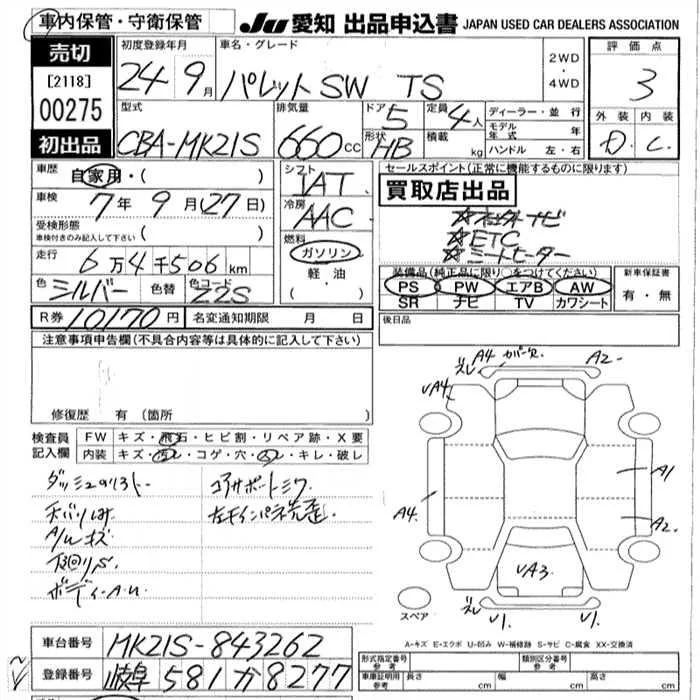 車内保管・守衛保管
JU 愛知 出品申込書 JAPAN USED CAR DEALERS ASSOCIATION
売切
[2118]
00275
初出品
初度登録年月
24 9月
車名・グレード
パレットSW TS
2WD
・
4WD
評価点
3
外装 内装
D. C.
型式
CBA-MK21S
排気量
660 cc
ドア 5
形状 HB
定員 4人
積載 kg
ディーラー・並行
モデル年式 年
ハンドル 左・右
車歴 自家用・( )
車検 7年 9月(27日)
受検形態
車検付きのみ記入して下さい ( )
走行 6万4千506km
色 シルバー 色替 色コード Z2S
シフト
IAT
冷房
AAC
燃料
ガソリン
軽油
( ・ )
セールスポイント(正常に機能するものに限ります)
買取店出品
ETC
シートヒーター
装備品(純正品に限り○をつけてください)
PS PW エアB AW
SR ナビ TV カワシート
新車保証書
有・無
R券 10170円 名変通知期限 月 日
後日品
注意事項申告欄(不具合内容等は具体的に記入して下さい)
修復歴 有(箇所 )
検査員記入欄
FW キズ・飛石・ヒビ割・リペア跡・X要
内装 キズ・汚レ・コゲ・穴・スレ・キレ・破レ
A/Wキズ
下回りS
コアサポートミワ
ズレ A4 カバー欠 A2
√A4
A4
A1
A2
√A3
ズレ √1. √1.
スペア
A-キズ E-エクボ U-凹み W-補修跡 S-サビ C-腐食 XX-交換済
車台番号 MK21S-843262
登録番号 岐阜 581 か 8277
形式指定番号 参考
類別区分番号 参考
車庫証明用 参考 長さ cm 幅 cm 高さ cm